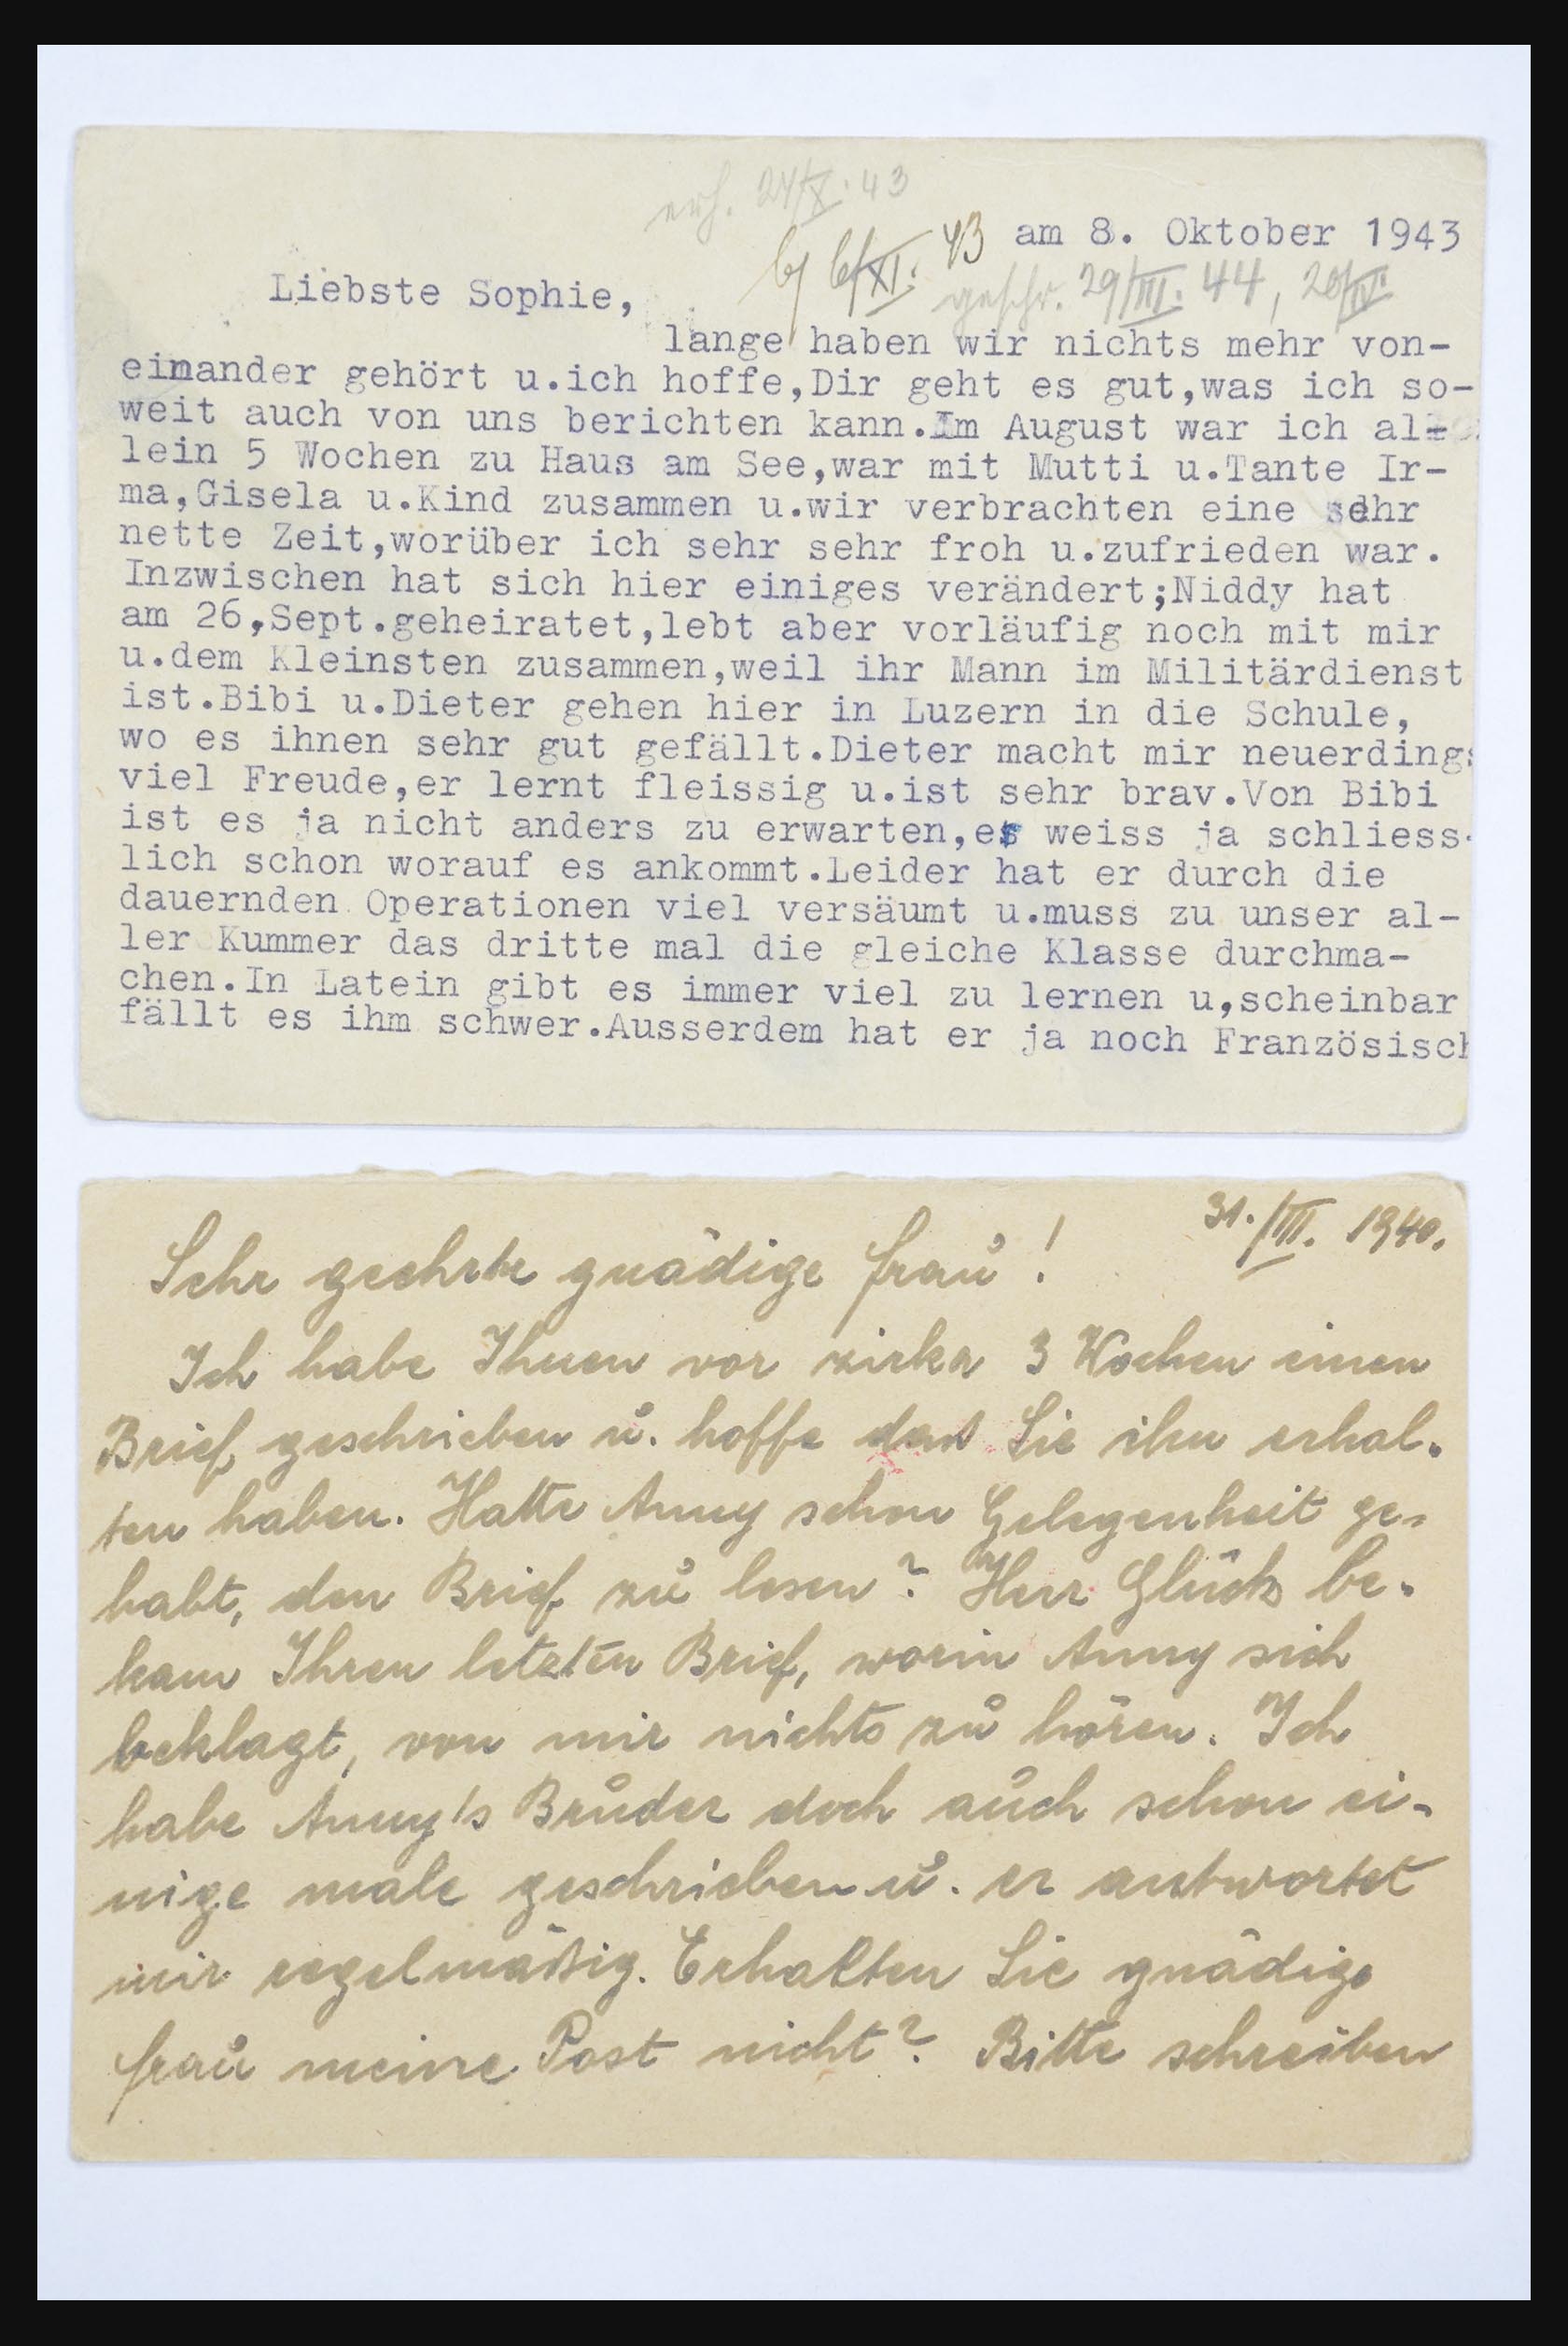 erh. 24/X. 43
6/XI. 43 am 8. Oktober 1943
geschr. 29/III. 44, 20/IV.
Liebste Sophie,
lange haben wir nichts mehr von-
einander gehört u.ich hoffe,Dir geht es gut,was ich so-
weit auch von uns berichten kann.Im August war ich al-
lein 5 Wochen zu Haus am See,war mit Mutti u.Tante Ir-
ma,Gisela u.Kind zusammen u.wir verbrachten eine sehr
nette Zeit,worüber ich sehr sehr froh u.zufrieden war.
Inzwischen hat sich hier einiges verändert;Niddy hat
am 26,Sept.geheiratet,lebt aber vorläufig noch mit mir
u.dem Kleinsten zusammen,weil ihr Mann im Militärdienst
ist.Bibi u.Dieter gehen hier in Luzern in die Schule,
wo es ihnen sehr gut gefällt.Dieter macht mir neuerdings
viel Freude,er lernt fleissig u.ist sehr brav.Von Bibi
ist es ja nicht anders zu erwarten,er weiss ja schliess-
lich schon worauf es ankommt.Leider hat er durch die
dauernden Operationen viel versäumt u.muss zu unser al-
ler Kummer das dritte mal die gleiche Klasse durchma-
chen.In Latein gibt es immer viel zu lernen u,scheinbar
fällt es ihm schwer.Ausserdem hat er ja noch Französisch
31./III. 1940.
Sehr geehrte gnädige Frau !
Ich habe Ihnen vor zirka 3 Wochen einen
Brief geschrieben u. hoffe daß Sie ihn erhal-
ten haben. Hatte Anny schon Gelegenheit ge-
habt, den Brief zu lesen? Herr Glück be-
kam Ihren letzten Brief, worin Anny sich
beklagt, von mir nichts zu hören. Ich
habe Anny's Bruder doch auch schon ei-
nige male geschrieben u. er antwortet
mir regelmäßig. Erhalten Sie gnädige
Frau meine Post nicht? Bitte schreiben